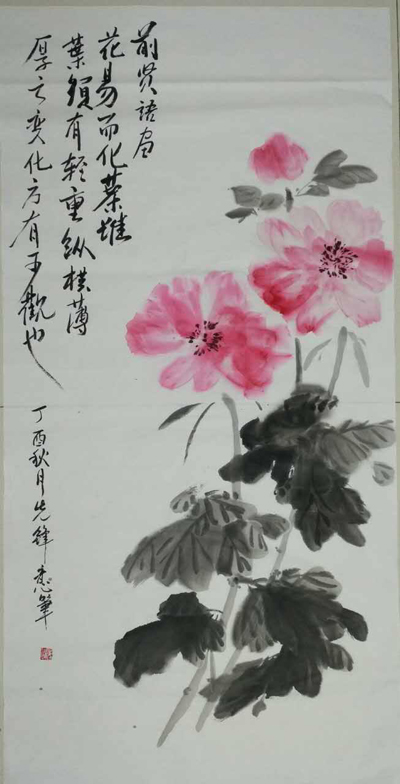 前贤语画
花易而化葉难
葉须有轻重纵横薄
厚之变化方有可觀也
丁酉秋月先锋意筆